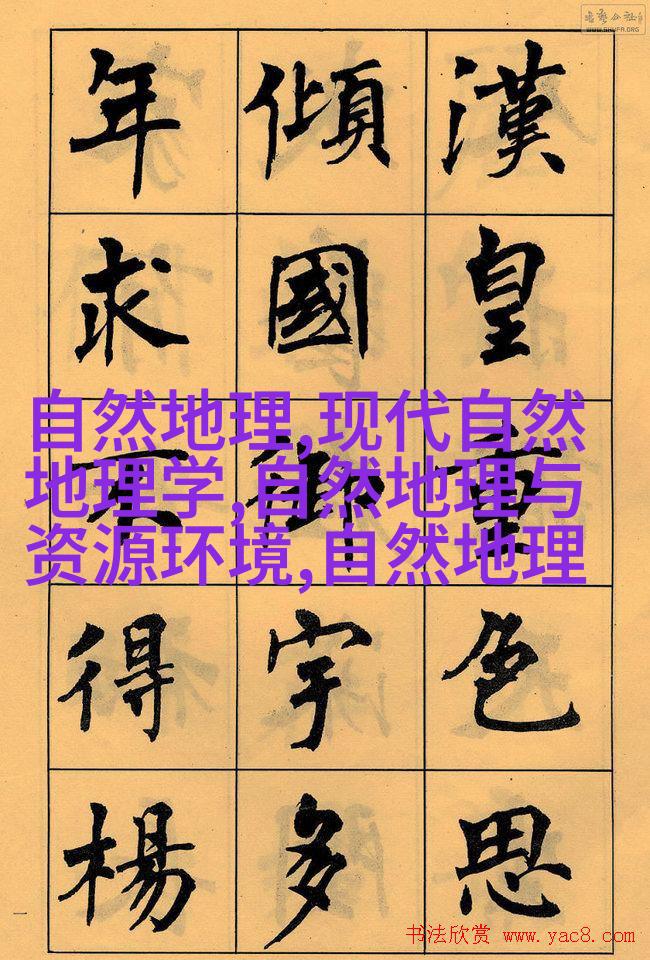 書藝公社
WWW.SHUFA.ORG
漢皇重色思
傾國御宇多
年求不得楊
自然地理,现代自然
地理学,自然地理与
资源环境,自然地理
一
书法欣赏 www.yac8.com